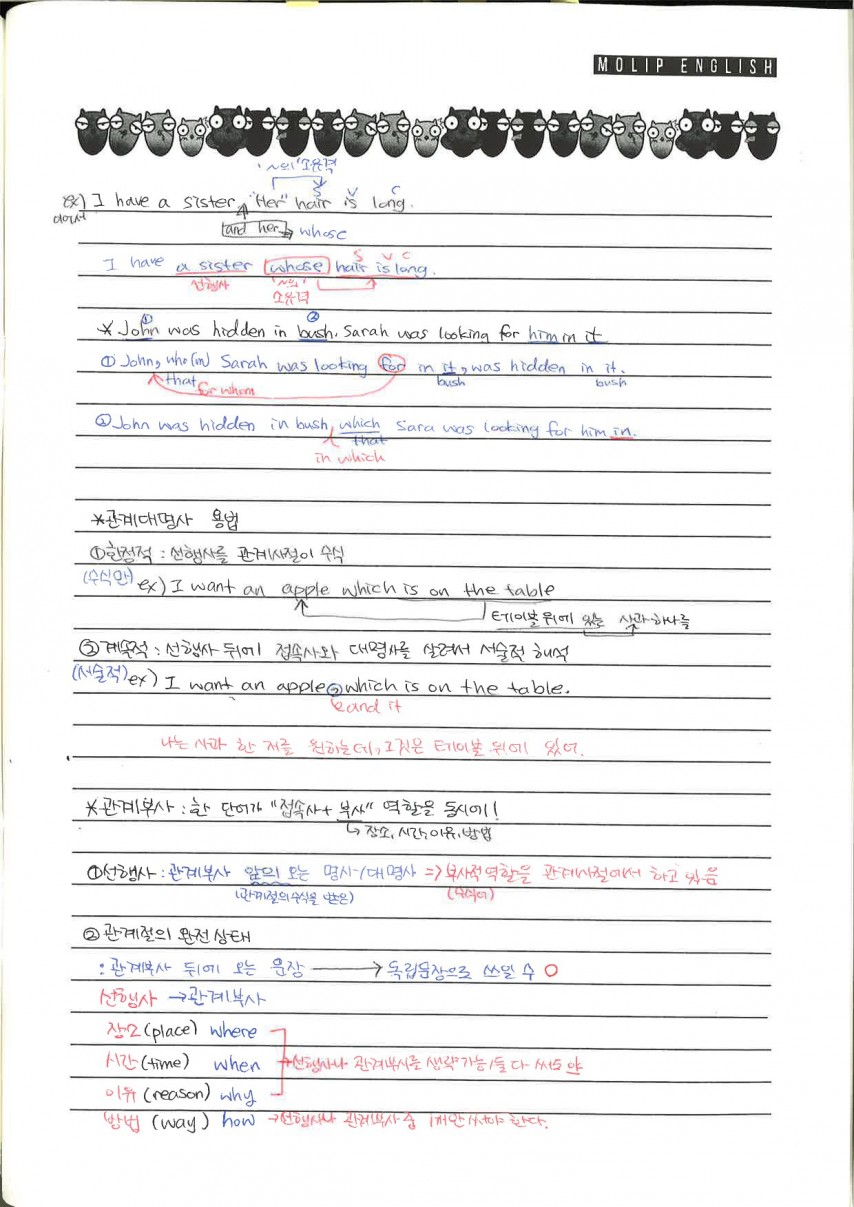 MOLIP ENGLISH
'~의' 소유격
S V C
ex) I have a sister "Her" hair is long.
and her → whose
S V C
I have a sister whose hair is long.
선행사 '~의'
소유격
① ②
* John was hidden in bush. Sarah was looking for him in it
① John, who(m) Sarah was looking for in it, was hidden in it.
that for whom bush bush
② John was hidden in bush, which Sara was looking for him in.
that
in which
* 관계대명사 용법
① 한정적 : 선행사를 관계사절이 수식
(수식만) ex) I want an apple which is on the table
테이블 위에 있는 사과 하나를
② 계속적 : 선행사 뒤에 접속사와 대명사를 살려서 서술적 해석
(서술적) ex) I want an apple, which is on the table.
and it
나는 사과 한 개를 원하는데, 그것은 테이블 위에 있어.
* 관계부사 : 한 단어가 "접속사 + 부사" 역할을 동시에!
↳ 장소, 시간, 이유, 방법
① 선행사 : 관계부사 앞의 오는 명사/대명사 ⇒ 부사적 역할을 관계사절에서 하고 있음
(관계절의 수식을 받은) (수식어)
② 관계절의 완전상태
: 관계부사 뒤에 오는 문장 → 독립문장으로 쓰일 수 O
선행사 → 관계부사
장소 (place) where
시간 (time) when → 선행사나 관계부사를 생략가능/둘 다 써도 야
이유 (reason) why
방법 (way) how → 선행사나 관계부사 중 1개만 써야 한다.